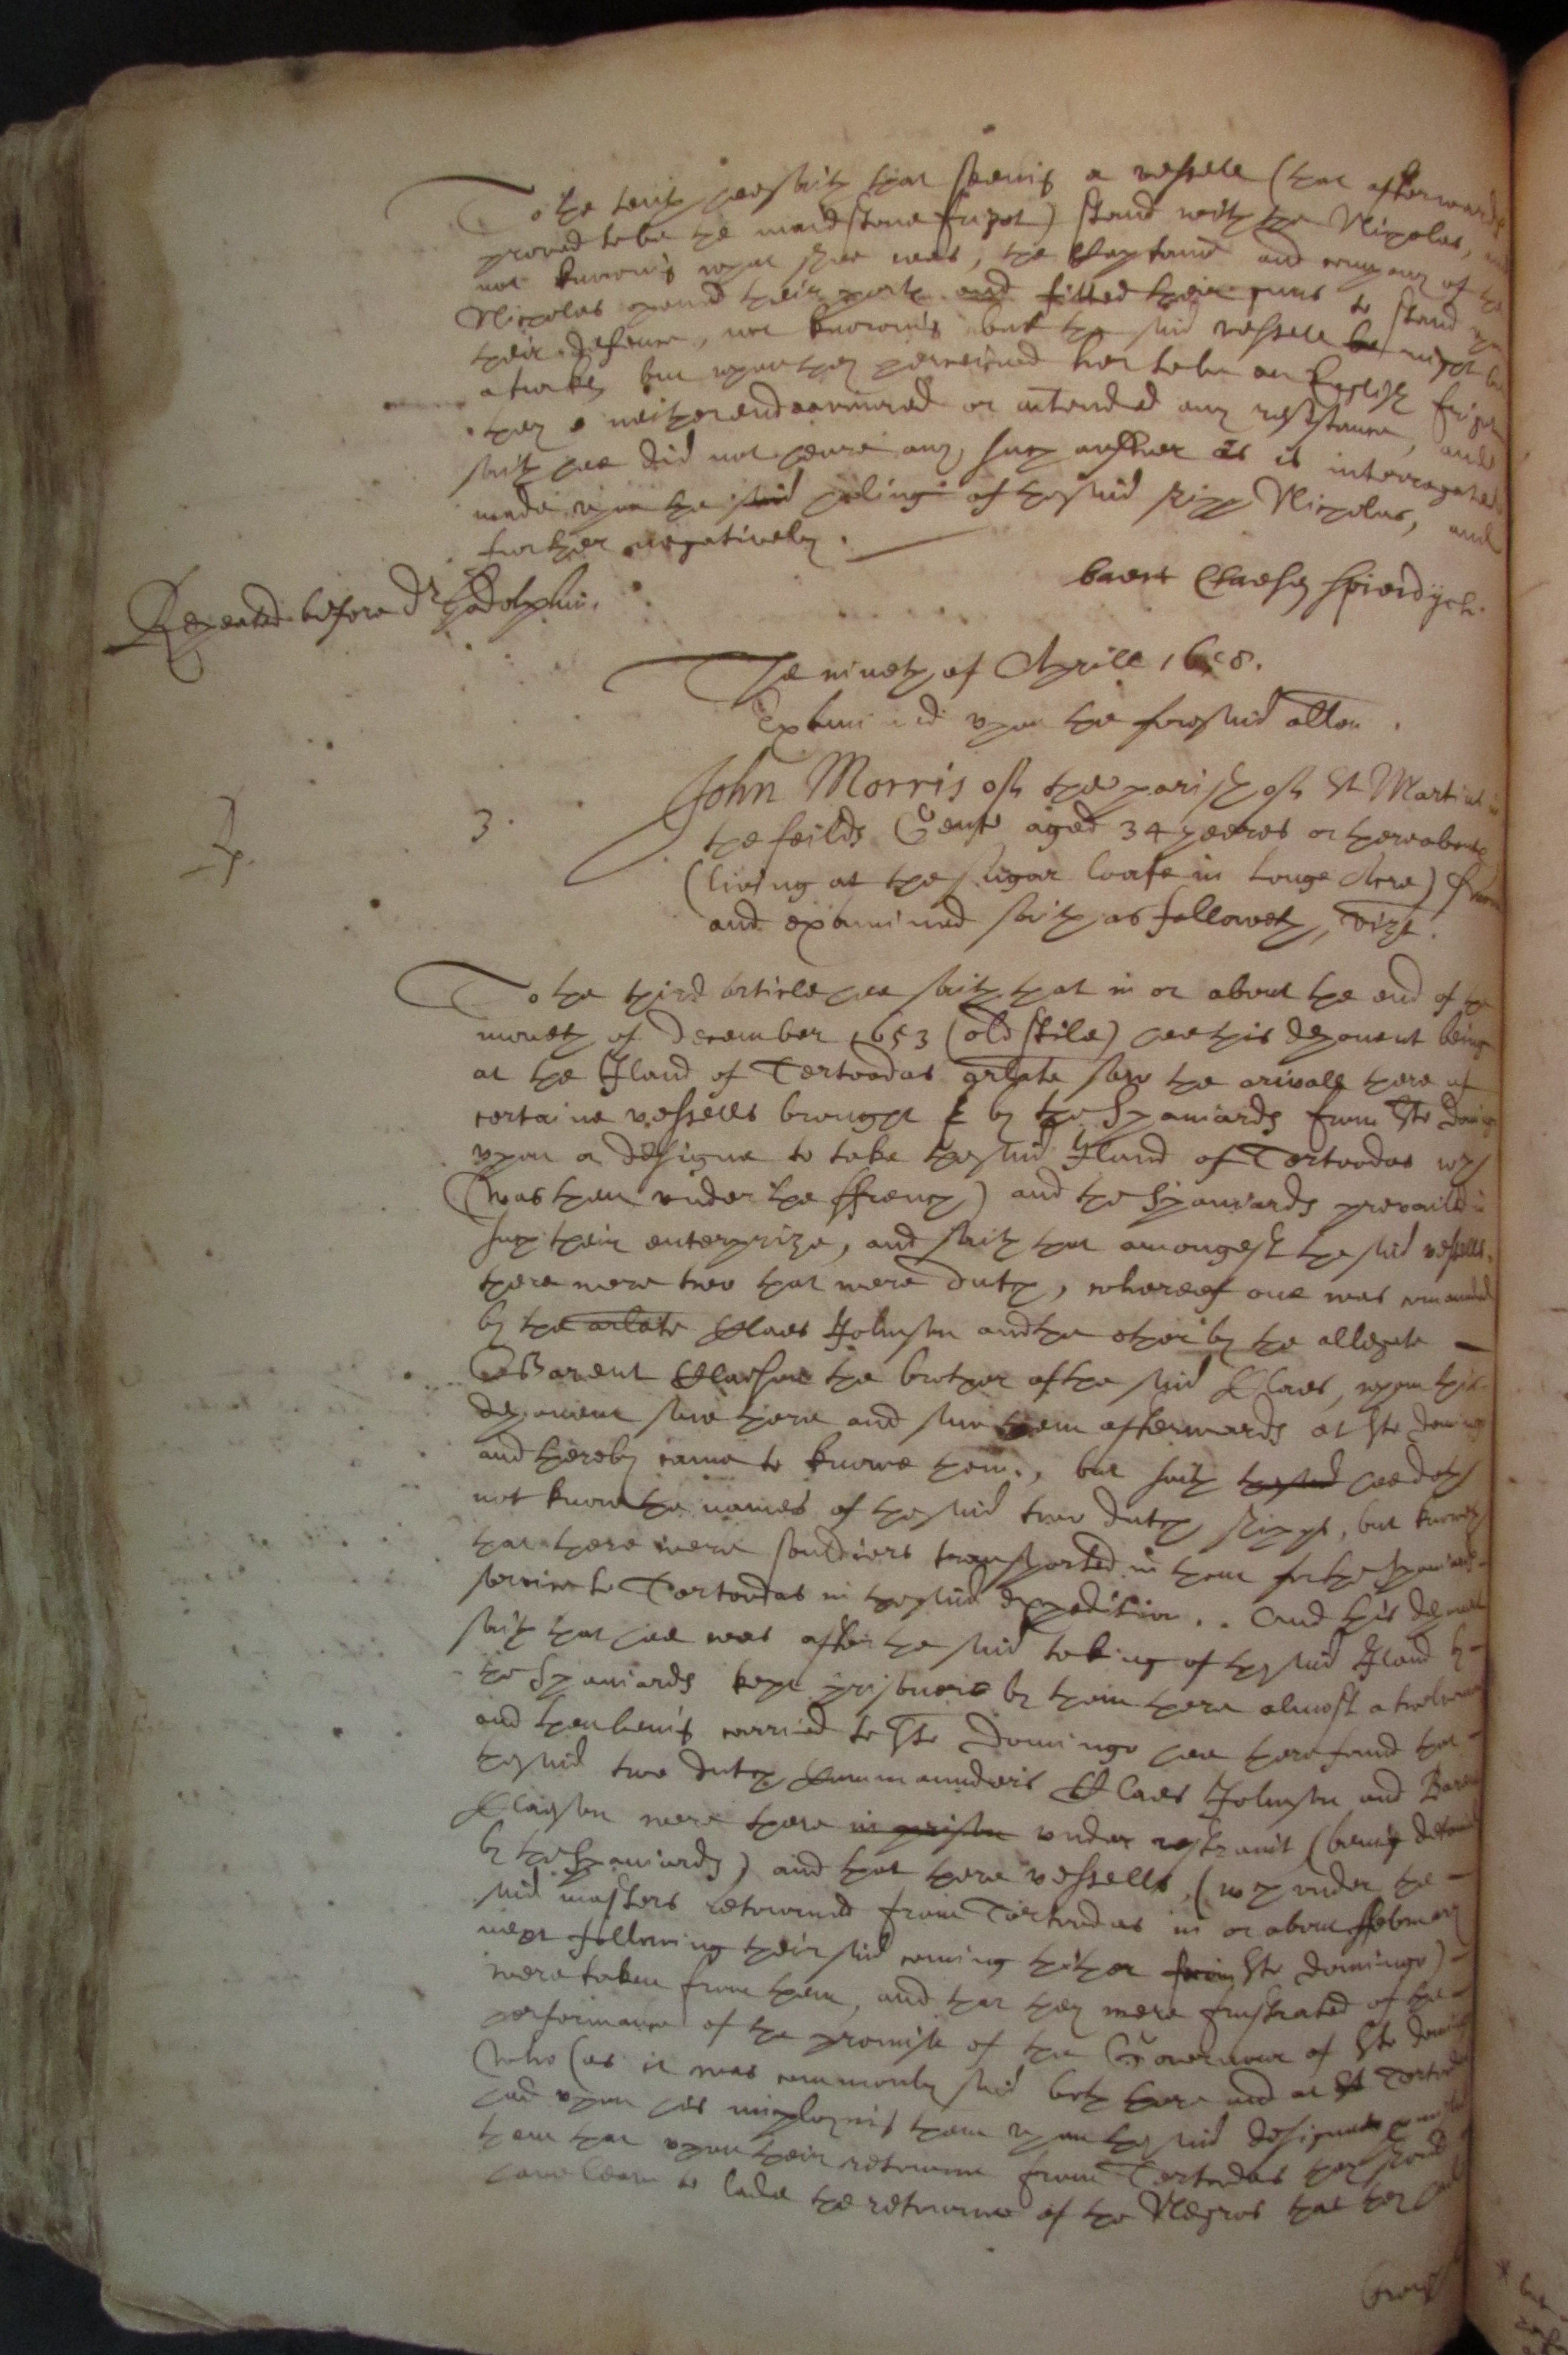 To the tenth hee saith that seeing a vessell (that afterwards
proved to be the maidstone frigot) stand with the Nicholas, and
not knowing what shee was, the Captaine and company of the
Nicholas opened their ports and fitted their guns to stand upon
their defence, not knowing but the said vessell might bee
a turke, but when they perceived her to be an English frigot
they neither endeavoured or intended any resistance, and
saith hee did not heare any such answer as is interrogated
made upon the hailing of the said shipp Nicholas, and
further negatively.
Barent Claesen Spierdijck.
Repeated before Dr Godolphin.
The nineth of Aprill 1658.
Examined upon the foresaid allon.
3. John Morris of the parish of St Martins in
the feilds Gent aged 34 yeeres or thereabouts
(living at the sugar loafe in Longe Acre) sworne
and examined saith as followeth, vizt.
To the third article hee saith that in or about the end of the
moneth of December 1653 (old stile) hee this deponent being
at the Iland of Tortoodas arlate saw the arivall there of
certaine vessells brought by the Spaniards from Sto Domingo
upon a designe to take the said Iland of Tortoodas wch
(was then under the ffrench) and the Spaniards prevailed in
such their enterprize, and saith that amongest the said vessells
there were two that were dutch, whereof one was comanded
by the arlate Claes Johnson and the other by the allegate
Barent Claeson the brother of the said Claes, whom this
deponent saw there and saw them afterwards at Sto Domingo
and thereby came to knowe them, but saith the said hee doth
not know the names of the said two dutch shipps, but knoweth
that there were souldiers transported in them for the Spaniards
service to Tortoodas in the said expedition. And this deponent
saith that hee was after the said taking of the said Iland by
the Spaniards kept prisoner by them there almost a twelvemoneth
and then being carried to Sto Domingo hee there found that
the said two dutch Commaunders Claes Johnson and Barent
Claeson were there in prison under restraint (being detained
by the Spaniards) and that there vessells, (wch under the
said masters retourned from Tortoodas in or about ffebruary
next following their said coming thither from Sto Domingo)
were taken from them, and that they were frustrated of the
performance of the promise of the Governour of Sto Domingo
who (as it was commonly said both there and at Tortoodas
had upon his imploying them upon the said designe promised
them that upon their retourne from Tortoodas they should
have leave to lade the retourne of the Negros that they had
brought